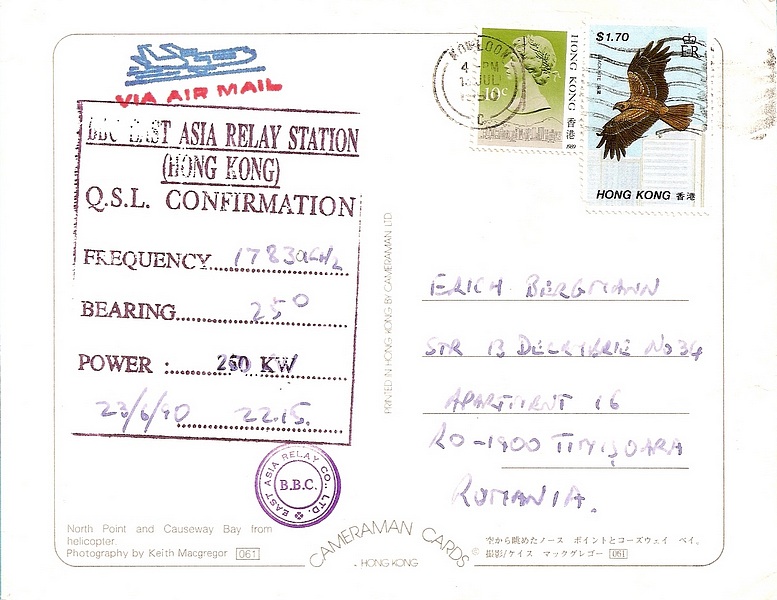 VIA AIR MAIL
BBC EAST ASIA RELAY STATION
(HONG KONG)
Q.S.L. CONFIRMATION
FREQUENCY 17830 KHz
BEARING 25°
POWER : 250 KW
23/6/90 2215.
EAST ASIA RELAY CO., LTD.
B.B.C.
North Point and Causeway Bay from
helicopter.
Photography by Keith Macgregor 061
PRINTED IN HONG KONG BY CAMERAMAN LTD
CAMERAMAN CARDS
HONG KONG
KOWLOON
PM
JUL
C
10c
HONG KONG 香港
1989
$1.70
ER
HONG KONG 香港
ERICH BERGMANN
STR 13 DECEMBRIE No 34
APARTMENT 16
RO-1900 TIMIŞOARA
ROMANIA.
空から眺めたノース ポイントとコーズウェイ ベイ。
撮影/ケイス マックグレゴー 061